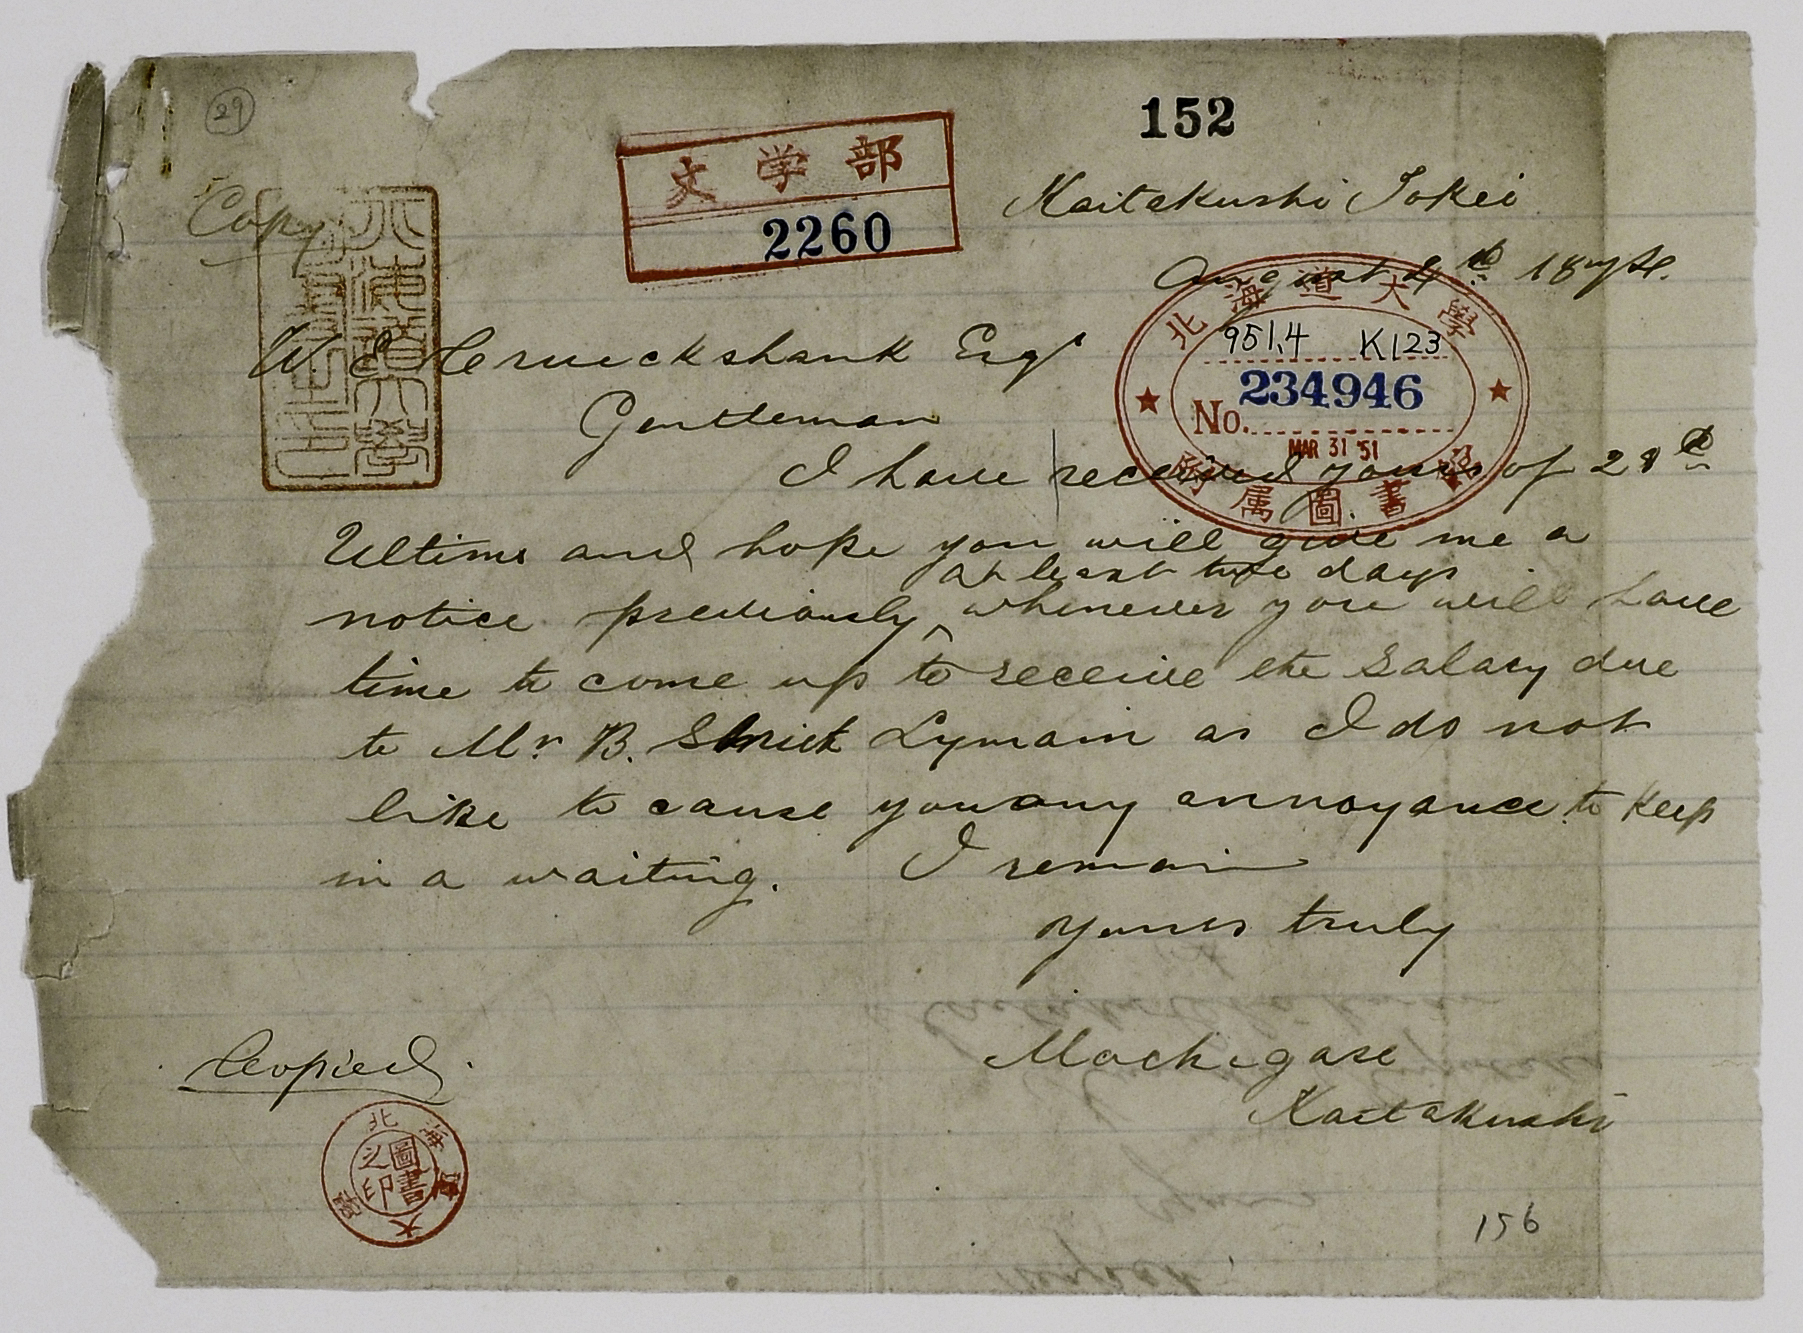 29
152
文学部
2260
Copy
Kaitakushi Tokei
August 4th 187
北海道大學
951.4 K123
234946
No.
MAR 31 '51
附属圖書館
北海道大學
W. E. Cruickshank Esqr
Gentleman
I have received yours of 28th
Ultimo and hope you will give me a
at least two days
notice previously ‸ whenever you will have
time to come up to receive the salary due
to Mr. B. Smith Lymain as I do not
like to cause you any annoyance to keep
in a waiting. I remain
yours truly
Mochigase
Kaitakushi
Copied.
北海道大學
圖書之印
156